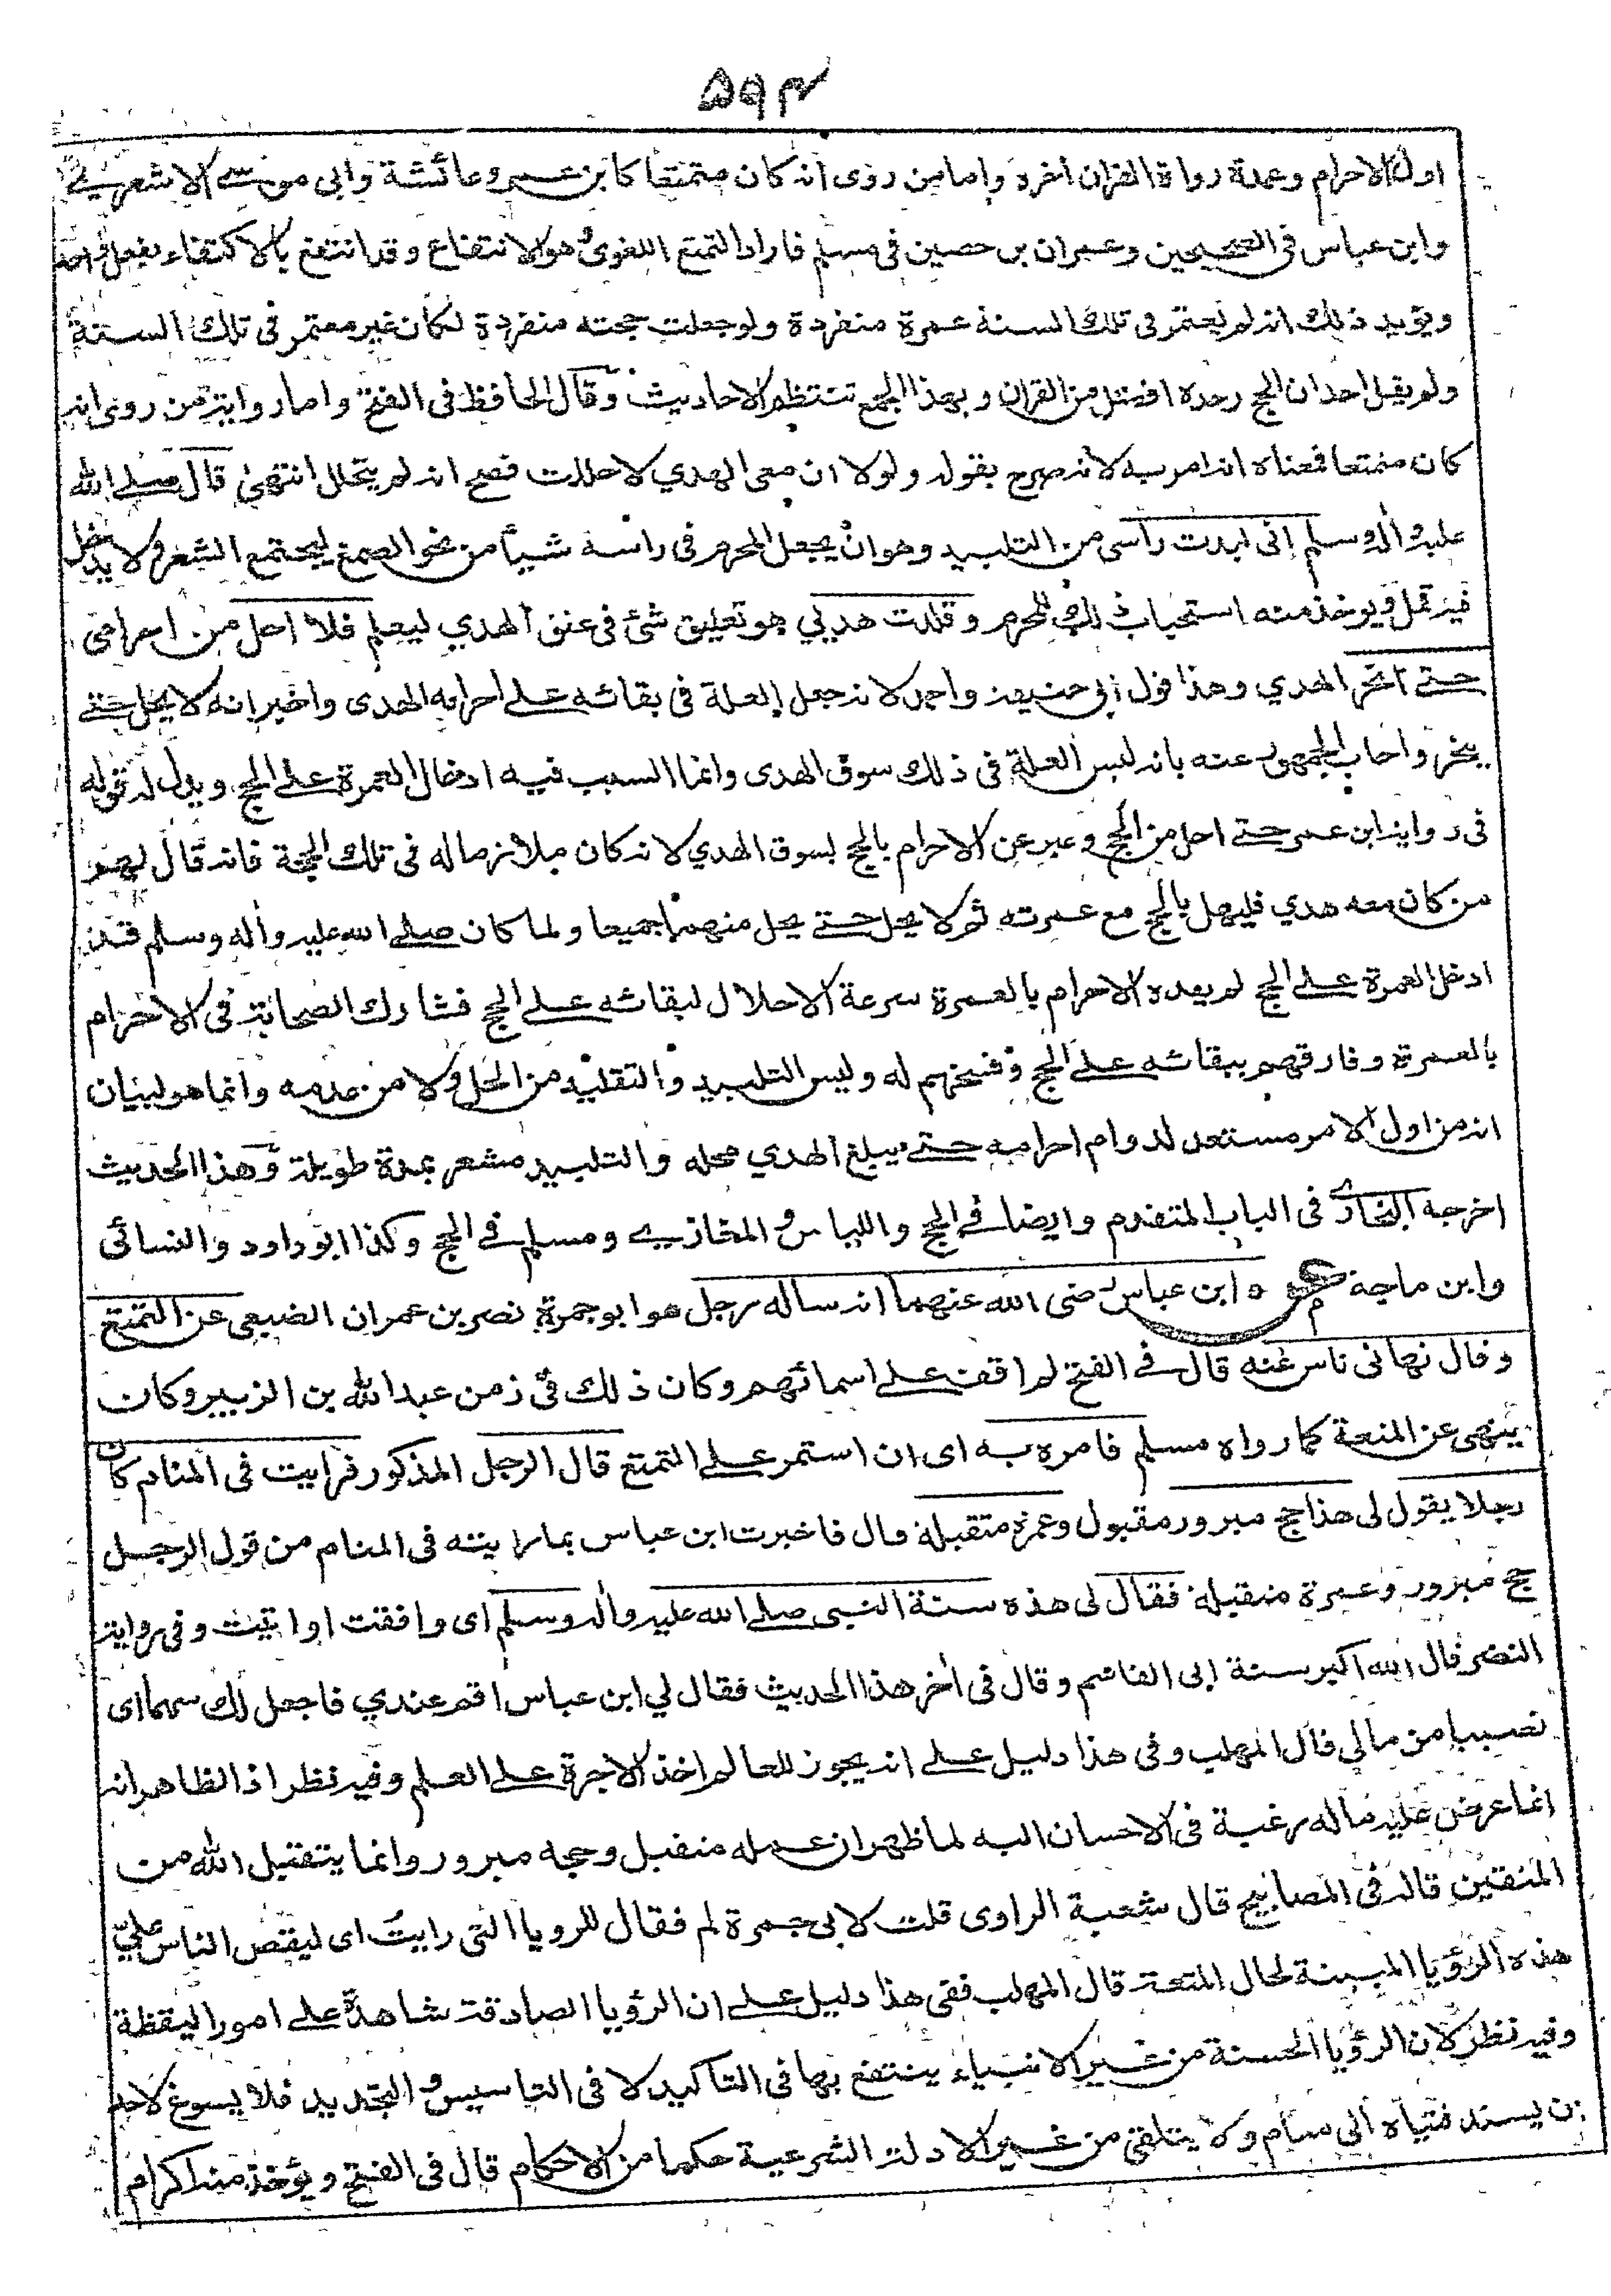 ۵۹۴
اول الاحرام وعمدة رواة القران اخره واما من روى انه كان متمتعا كابن عمر وعائشة وابي موسى الاشعري
وابن عباس فى الصحيحين وعمران بن حصين فى مسلم فاراد التمتع اللغوى وهو الانتفاع وقد انتفع بالاكتفاء بفعل واحد
ويؤيد ذلك انه لم يعتمر فى تلك السنة عمرة منفردة ولو جعلت حجته منفردة لكان غير معتمر فى تلك السنة
ولم يقل احد ان الحج وحده افضل من القران وبهذا الجمع تنتظم الاحاديث وقال الحافظ فى الفتح واما رواية من روى انه
كان متمتعا فمعناه انه امر به لانه صرح بقوله ولولا ان معى الهدي لاحللت فصح انه لم يتحلل انتهى قال صلى الله
عليه واٰله وسلم انى لبدت رأسى من التلبيد وهو ان يجعل المحرم فى راسه شيأ من نحو الصمغ ليجتمع الشعر ولا يدخل
فيه قمل ويوخذ منه استحباب ذلك للمحرم وقلدت هديي هو تعليق شئ فى عنق الهدي ليعلم فلا احل من احرامى
حتى انحر الهدي وهذا قول ابى حنيفة واحمد لانه جعل العلة فى بقائه على احرامه الهدى واخبر انه لا يحل حتى
ينحر واجاب الجمهور عنه بانه ليس العلة فى ذلك سوق الهدى وانما السبب فيه ادخال العمرة على الحج ويدل له قوله
فى رواية ابن عمر حتى احل من الحج وعبر عن الاحرام بالحج بسوق الهدي لانه كان ملازما له فى تلك الحجة فانه قال لهم
من كان معه هدي فليهل بالحج مع عمرته ثم لا يحل حتى يحل منهما جميعا ولما كان صلى الله عليه واٰله وسلم قد
ادخل العمرة على الحج لم يفده الاحرام بالعمرة سرعة الاحلال لبقائه على الحج فشارك الصحابة فى الاحرام
بالعمرة وفارقهم ببقائه على الحج وفسخهم له وليس التلبيد والتقليد من الحل ولا من عدمه وانما هو لبيان
انه من اول الامر مستعد لدوام احرامه حتى يبلغ الهدي محله والتلبيد مشعر بمدة طويلة وهذا الحديث
اخرجه البخارى فى الباب المتقدم وايضا فى الحج واللباس والمغازي ومسلم فى الحج وكذا ابو داود والنسائى
وابن ماجة عن ابن عباس رضى الله عنهما انه ساله رجل هو ابو جمرة نصر بن عمران الضبعى عن التمتع
وقال نهانى ناس عنه قال فى الفتح لم اقف على اسمائهم وكان ذلك فى زمن عبد الله بن الزبير وكان
ينهى عن المتعة كما رواه مسلم فامره به اى ان استمر على التمتع قال الرجل المذكور فرايت فى المنام كان
رجلا يقول لى هذا حج مبرور مقبول وعمرة متقبلة قال فاخبرت ابن عباس بما رايته فى المنام من قول الرجل
حج مبرور وعمرة متقبلة فقال لى هذه سنة النبى صلى الله عليه واٰله وسلم اى وافقت او اتيت وفى رواية
النضر فقال الله اكبر سنة ابى القاسم وقال فى اٰخر هذا الحديث فقال لي ابن عباس اقم عندي فاجعل لك سهما اى
نصيبا من مالى قال المهلب وفى هذا دليل على انه يجوز للعالم اخذ الاجرة على العلم وفيه نظر اذ الظاهر انه
انما عرض عليه ماله رغبة فى الاحسان اليه لما ظهر ان عمله متقبل وحجه مبرور وانما يتقبل الله من
المتقين قاله فى المصابيح قال شعبة الراوى قلت لابى جمرة لم فقال للرويا التى رايت اى ليقص الناس على
هذه الرؤيا المبينة لحال المتعة قال المهلب ففى هذا دليل على ان الرؤيا الصادقة شاهدة على امور اليقظة
وفيه نظر لان الرؤيا الحسنة من غير الانبياء ينتفع بها فى التاكيد لا فى التاسيس والتجديد فلا يسوغ لاحد
ان يسند فتياه الى منام ولا يتلقى من غير الادلة الشرعية حكما من الاحكام قال فى الفتح ويؤخذ منه اكرام